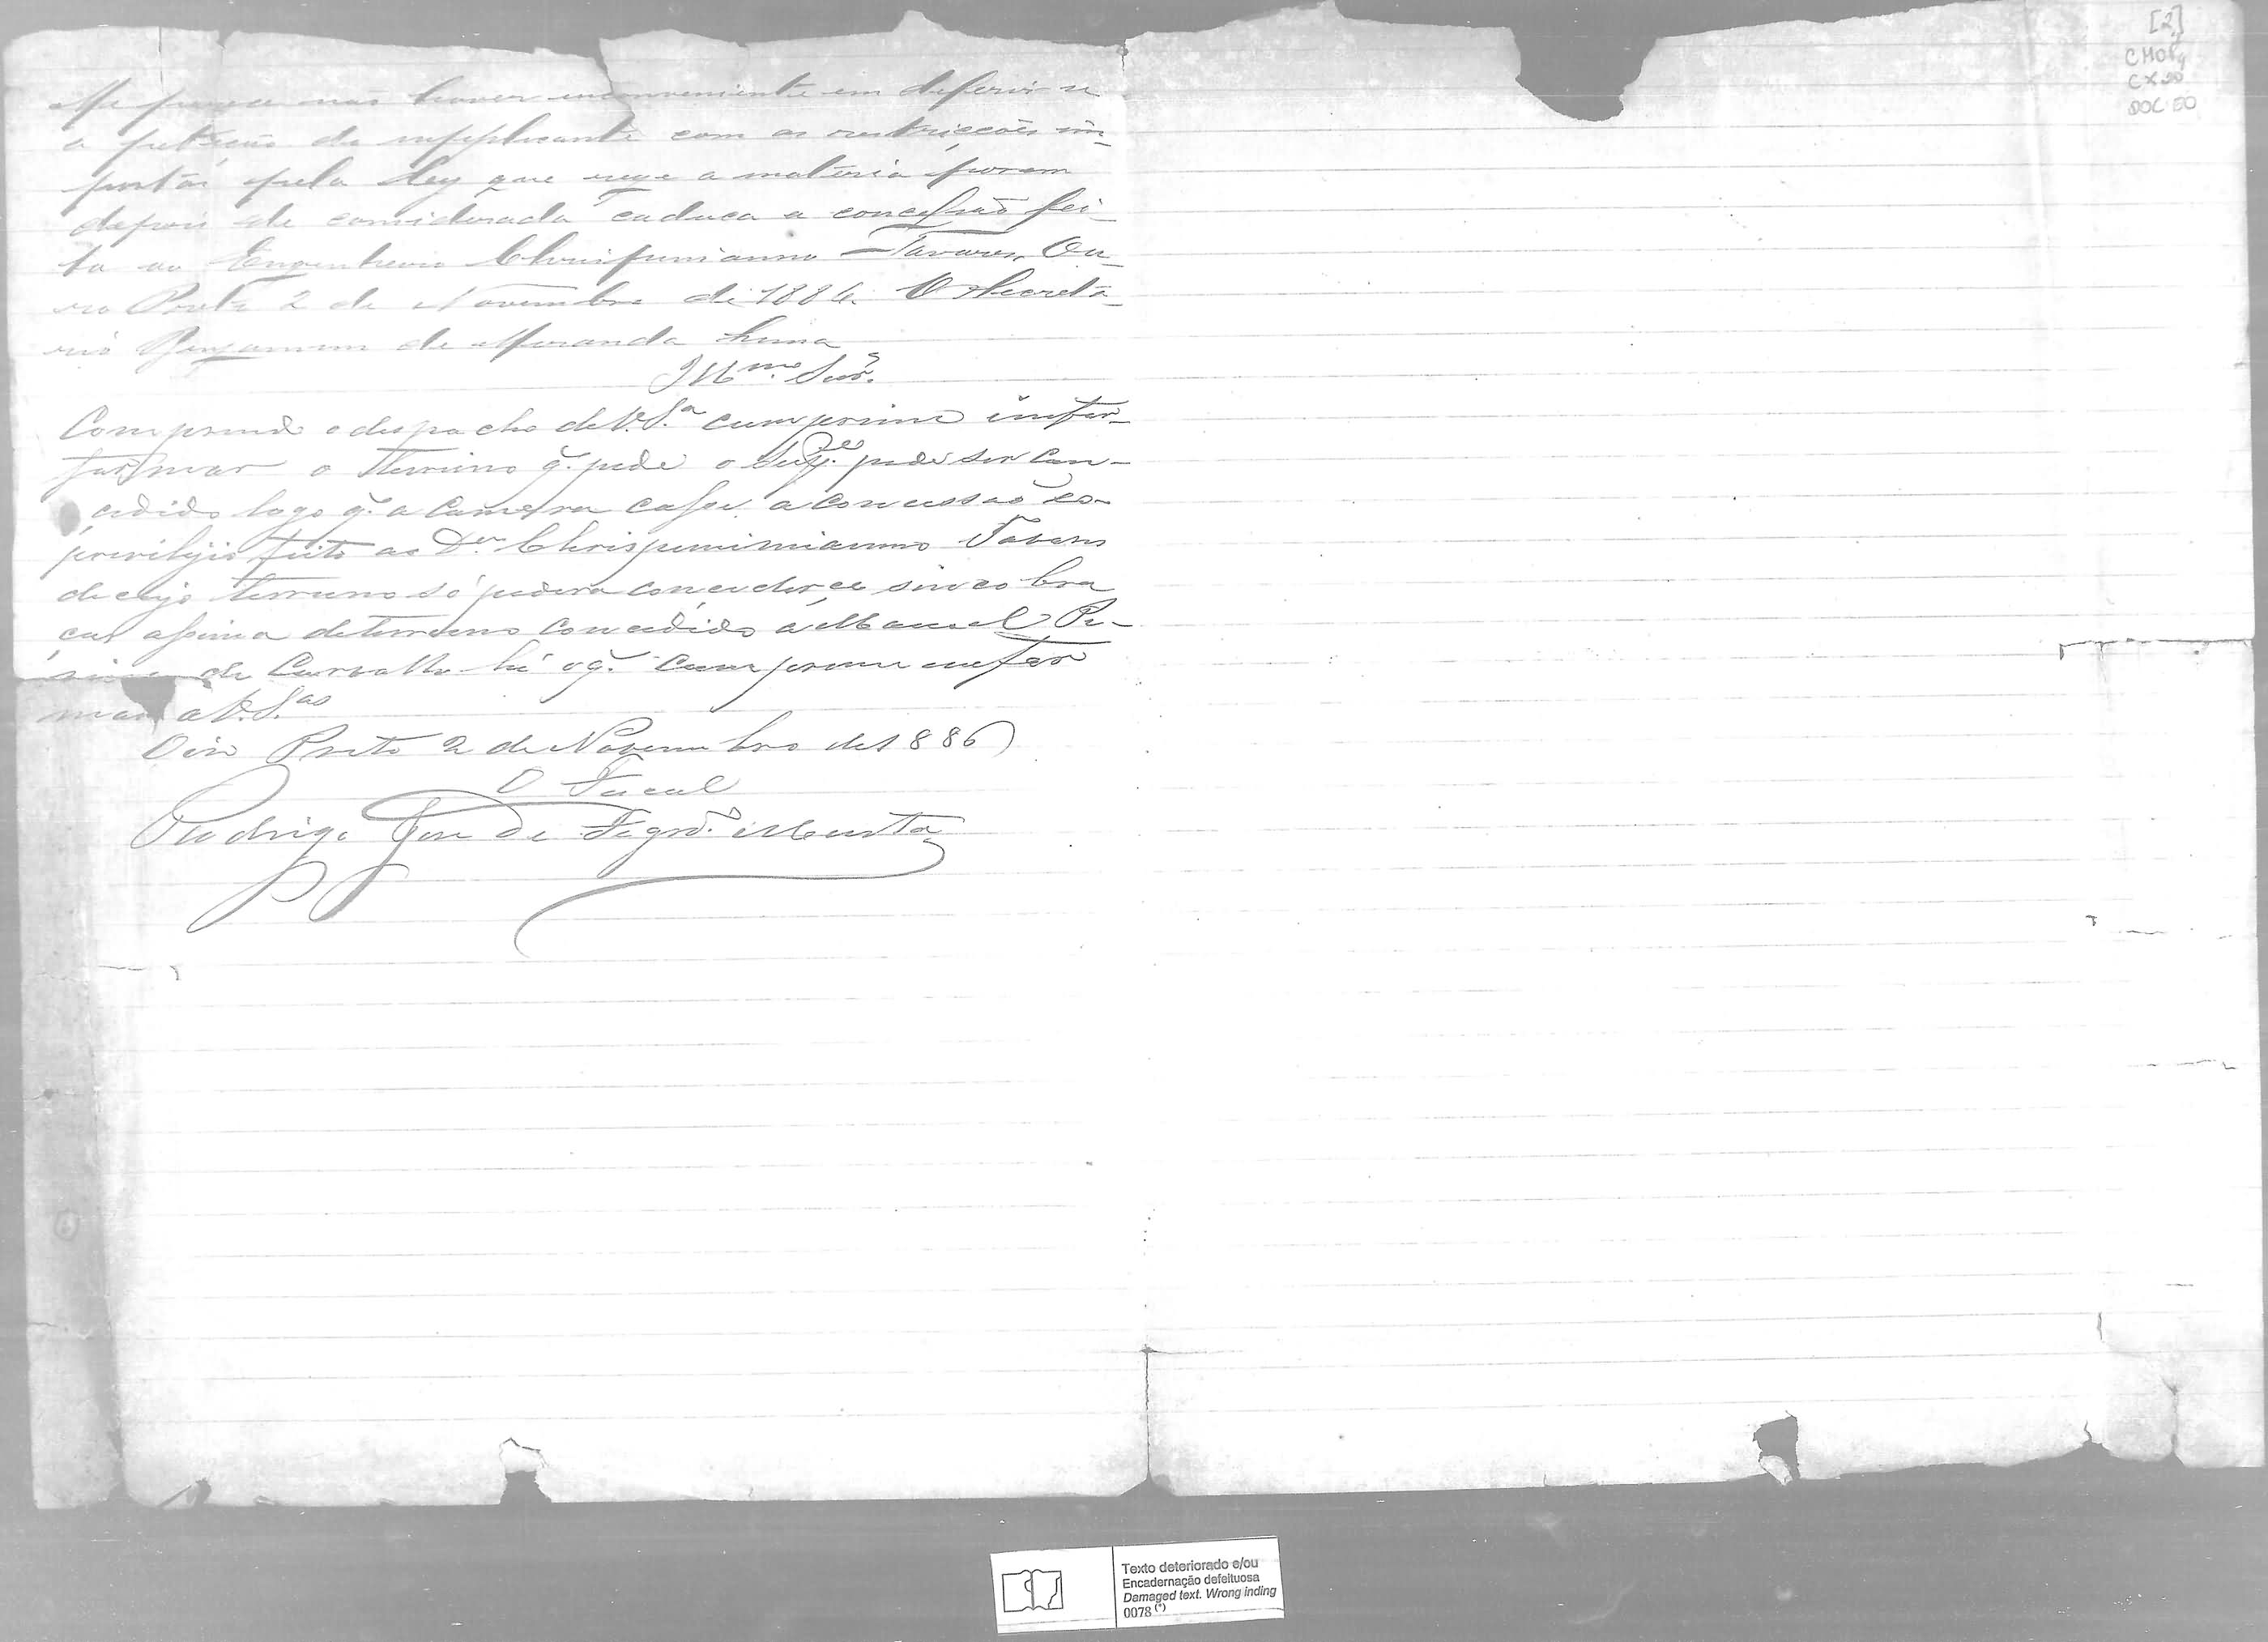 Me parece não haver inconveniente em deferir-se
a petição do supplicante com as restricções im-
postas pela Ley que rege a materia porem
depois de considerada caduca a concessão fei-
ta ao Engenheiro Chrispinianno Tavares. Ou-
ro Preto 2 de Novembro de 1886. O Secreta-
rio Benjamim de Miranda Lima
Illmo. Snr.
Comprindo o despacho de V. S.a cumprime infor-
formar o terreno q. pede o Supe. pode ser con-
cedido logo q. a Camera casse a concessão
previlejio feito ao Dor. Chrispiminianno Tavares
de cujo terreno só podera concederce sinco bra
cas assima do terreno concedido á Manoel Pe-
de Carvalho hé oq. cumprime infor
mar a V. S.as
Oiro Preto 2 de Novembro de 1886
O Fiscal
Rodrigo José de Figrdo. Murta
[2]
CMOP
CX 90
DOC 50
Texto deteriorado e/ou
Encadernação defeituosa
Damaged text. Wrong inding
0078 (*)